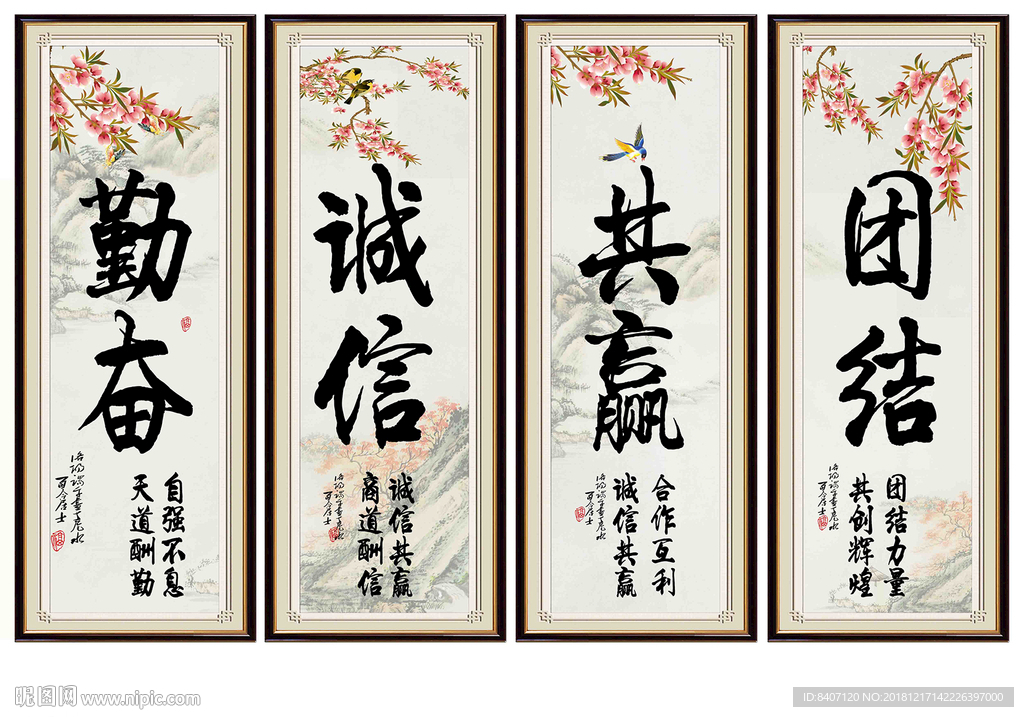 勤奋
自强不息
天道酬勤
诚信
诚信共赢
商道酬信
共赢
合作互利
诚信共赢
团结
团结力量
共创辉煌
昵图网 www.nipic.com
ID:8407120 NO:20181217142226397000